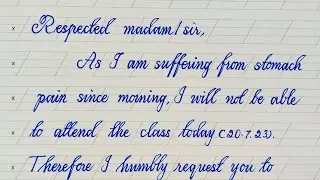 Respected madam/sir,
As I am suffering from stomach
pain since morning, I will not be able
to attend the class today (20.7.23).
Therefore I humbly request you to